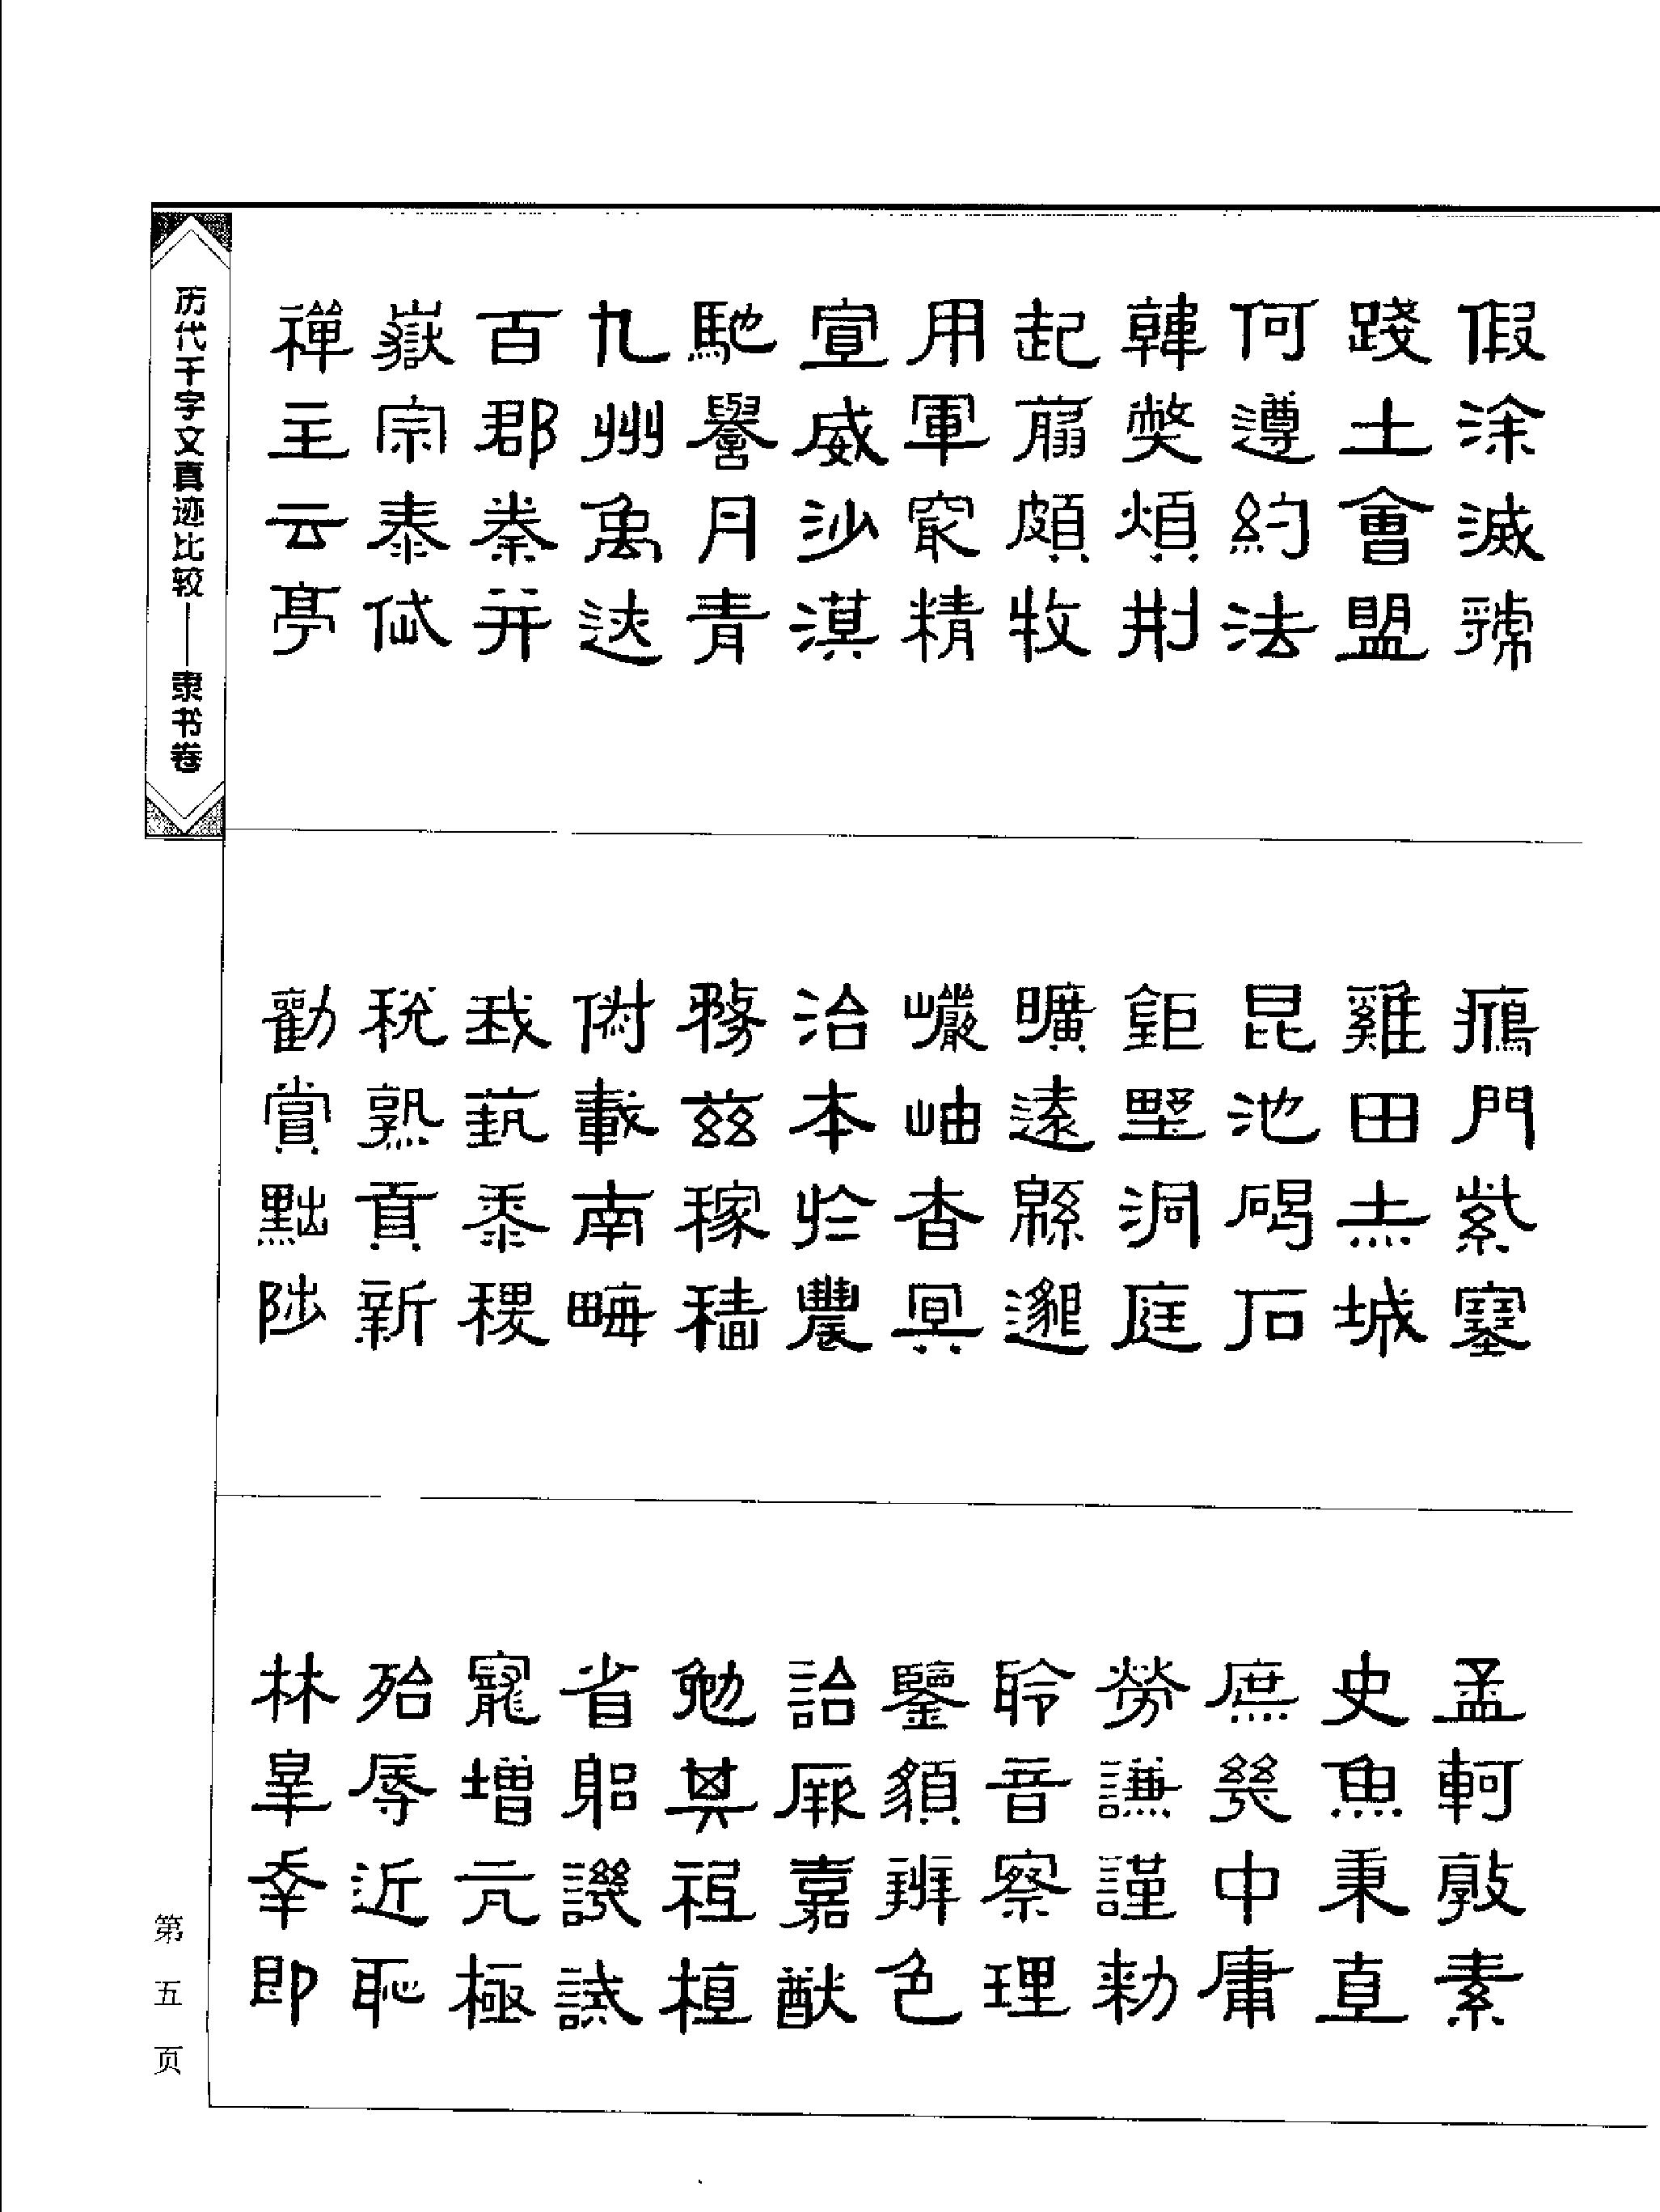 假涂滅虢
踐土會盟
何遵約法
韓獘煩刑
起翦頗牧
用軍冣精
宣威沙漠
馳譽丹青
九州禹迹
百郡秦并
嶽宗泰岱
禪主云亭
鴈門紫塞
雞田赤城
昆池碣石
鉅野洞庭
曠遠緜邈
巖岫杳冥
治本於農
務兹稼穡
俶載南畮
我藝黍稷
稅熟貢新
勸賞黜陟
孟軻敦素
史魚秉直
庶幾中庸
勞謙謹勑
聆音察理
鑒貌辨色
詒厥嘉猷
勉其祗植
省躬譏誡
寵增亢極
殆辱近恥
林睾幸即
历代千字文真迹比较——隶书卷
第五页